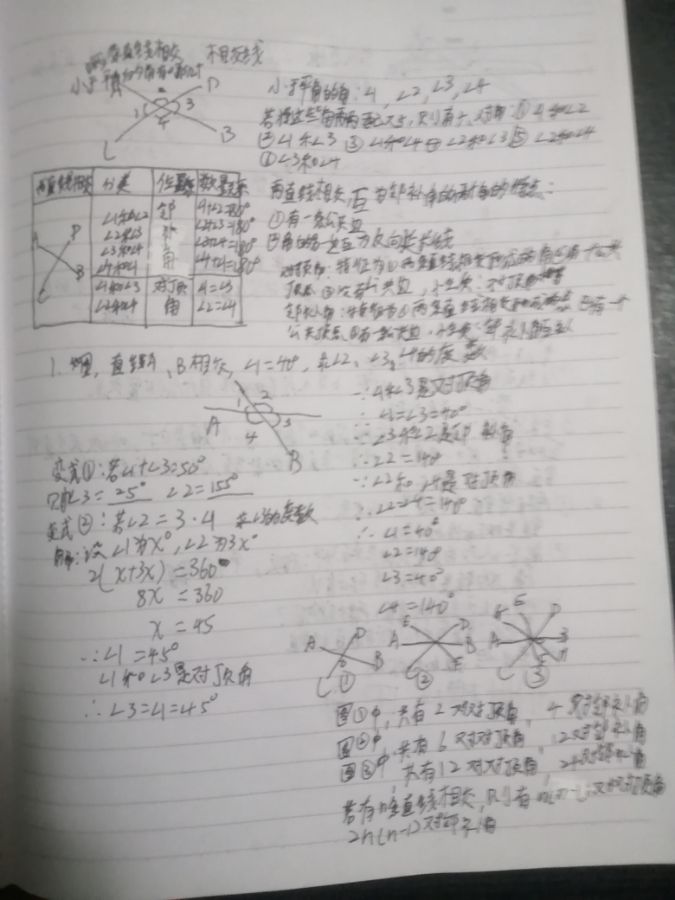 两条直线相交 相交线
小于平角的角有几个
D
1 3
4
C B
小于平角的角:∠1,∠2,∠3,∠4
若将这些角两两配对,则有六对角:①∠1和∠2
②∠1和∠3 ③∠1和∠4 ④∠2和∠3 ⑤∠2和∠4
⑥∠3和∠4
两直线相交 分类 位置关系 数量关系
∠1和∠2 邻 ∠1+∠2=180°
∠2和∠3 补 ∠2+∠3=180°
∠3和∠4 角 ∠3+∠4=180°
∠4和∠1 ∠4+∠1=180°
∠1和∠3 对顶 ∠1=∠3
∠2和∠4 角 ∠2=∠4
A D
C B
两直线相交,互为邻补角的两角的特点:
①有一条公共边
②角的另一边互为反向延长线
对顶角:特征为①两条直线相交形成的角②有一个公共
顶点③没有公共边,性质:对顶角相等
邻补角:特征为①两条直线相交形成②有一个
公共顶点③有一条公共边,性质:邻补角互补
1.如图,直线A,B相交,∠1=40°,求∠2、∠3,∠4的度数
1 2
A 3
4
B
∵∠1和∠3是对顶角
∴∠1=∠3=40°
∵∠3和∠2是邻补角
∴∠2=140°
∵∠2和∠4是对顶角
∴∠2=∠4=140°
∴∠1=40°
∠2=140°
∠3=40°
∠4=140°
变式①:若∠1+∠3=50°
则∠3=25° ∠2=155°
变式②:若∠2=3∠1 求∠3的度数
解:设∠1为x°,∠2为3x°
2(x+3x)=360
8x=360
x=45
∴∠1=45°
∠1和∠3是对顶角
∴∠3=∠1=45°
A D
C B
①
E D
A B
C F
②
E D
A B
C
③
图①中,共有2对对顶角,4对邻补角
图②中,共有6对对顶角,12对邻补角
图③中,共有12对对顶角,24对邻补角
若有n条直线相交,则有n(n-1)对对顶角
2n(n-1)对邻补角